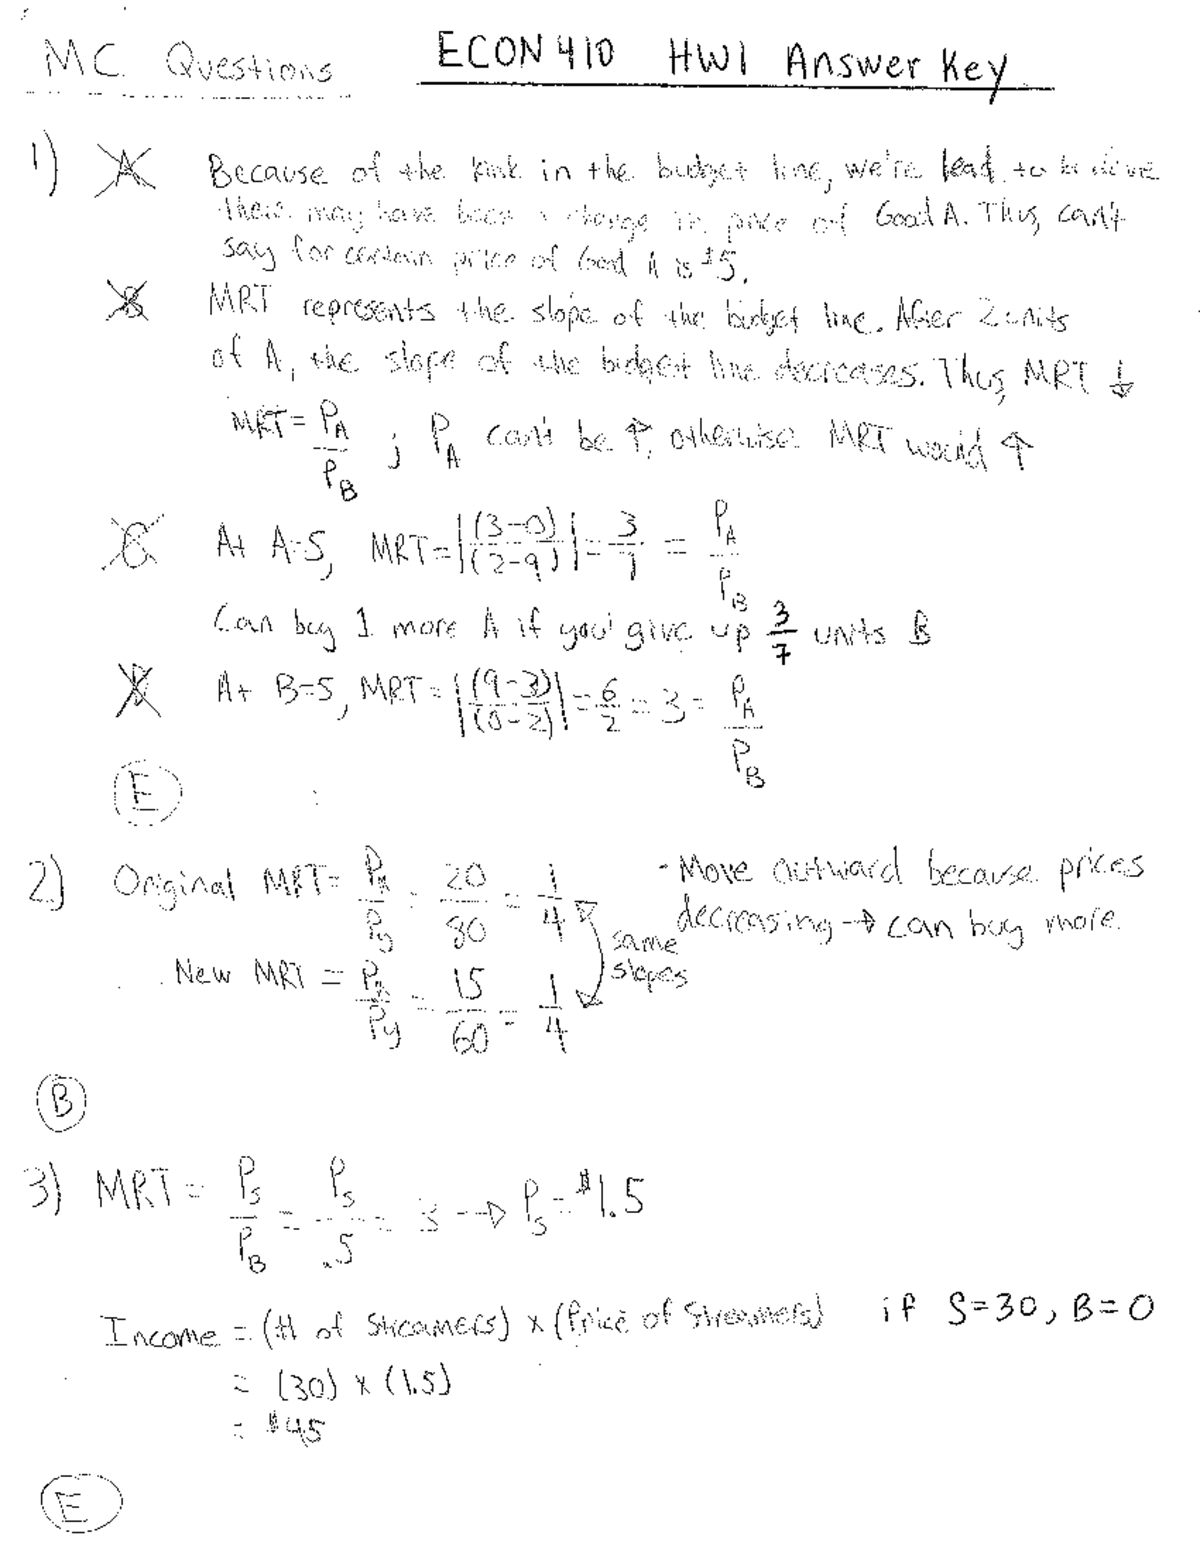 MC. Questions ECON 410 HW1 Answer Key
1) A Because of the kink in the budget line, we're lead to believe
there may have been a change in price of Good A. Thus, can't
say for certain price of Good A is $5.
B MRT represents the slope of the budget line. After 2 units
of A, the slope of the budget line decreases. Thus, MRT ↓
MRT = P_A / P_B ; P_A can't be ↑, otherwise MRT would ↑
C At A=5, MRT = |(3-0) / (2-9)| = 3/7 = P_A / P_B
Can buy 1 more A if you give up 3/7 units B
D At B=5, MRT = |(9-3) / (0-2)| = 6/2 = 3 = P_A / P_B
E
2.) Original MRT = P_x / P_y = 20/80 = 1/4
- Move outward because prices
decreasing → can buy more.
same
slopes
New MRT = P_x / P_y = 15/60 = 1/4
B
3) MRT = P_S / P_B = P_S / .5 = 3 → P_S = $1.5
Income = (# of Streamers) x (Price of Streamers) if S=30, B=0
= (30) x (1.5)
= $45
E